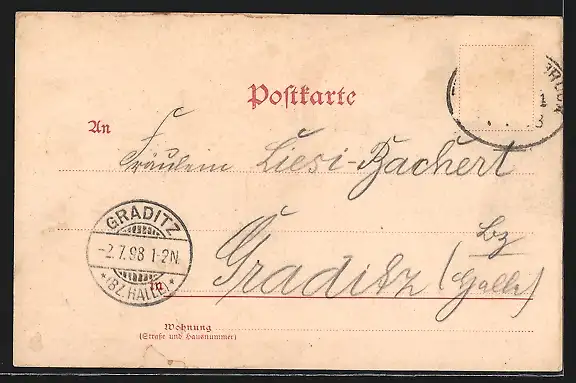 Postkarte
An
Fräulein Liesi Bachert
GRADITZ
-2.7.98 1-2N.
*(BZ.HALLE)*
Bz
in Graditz (Halle)
Wohnung
(Straße und Hausnummer)